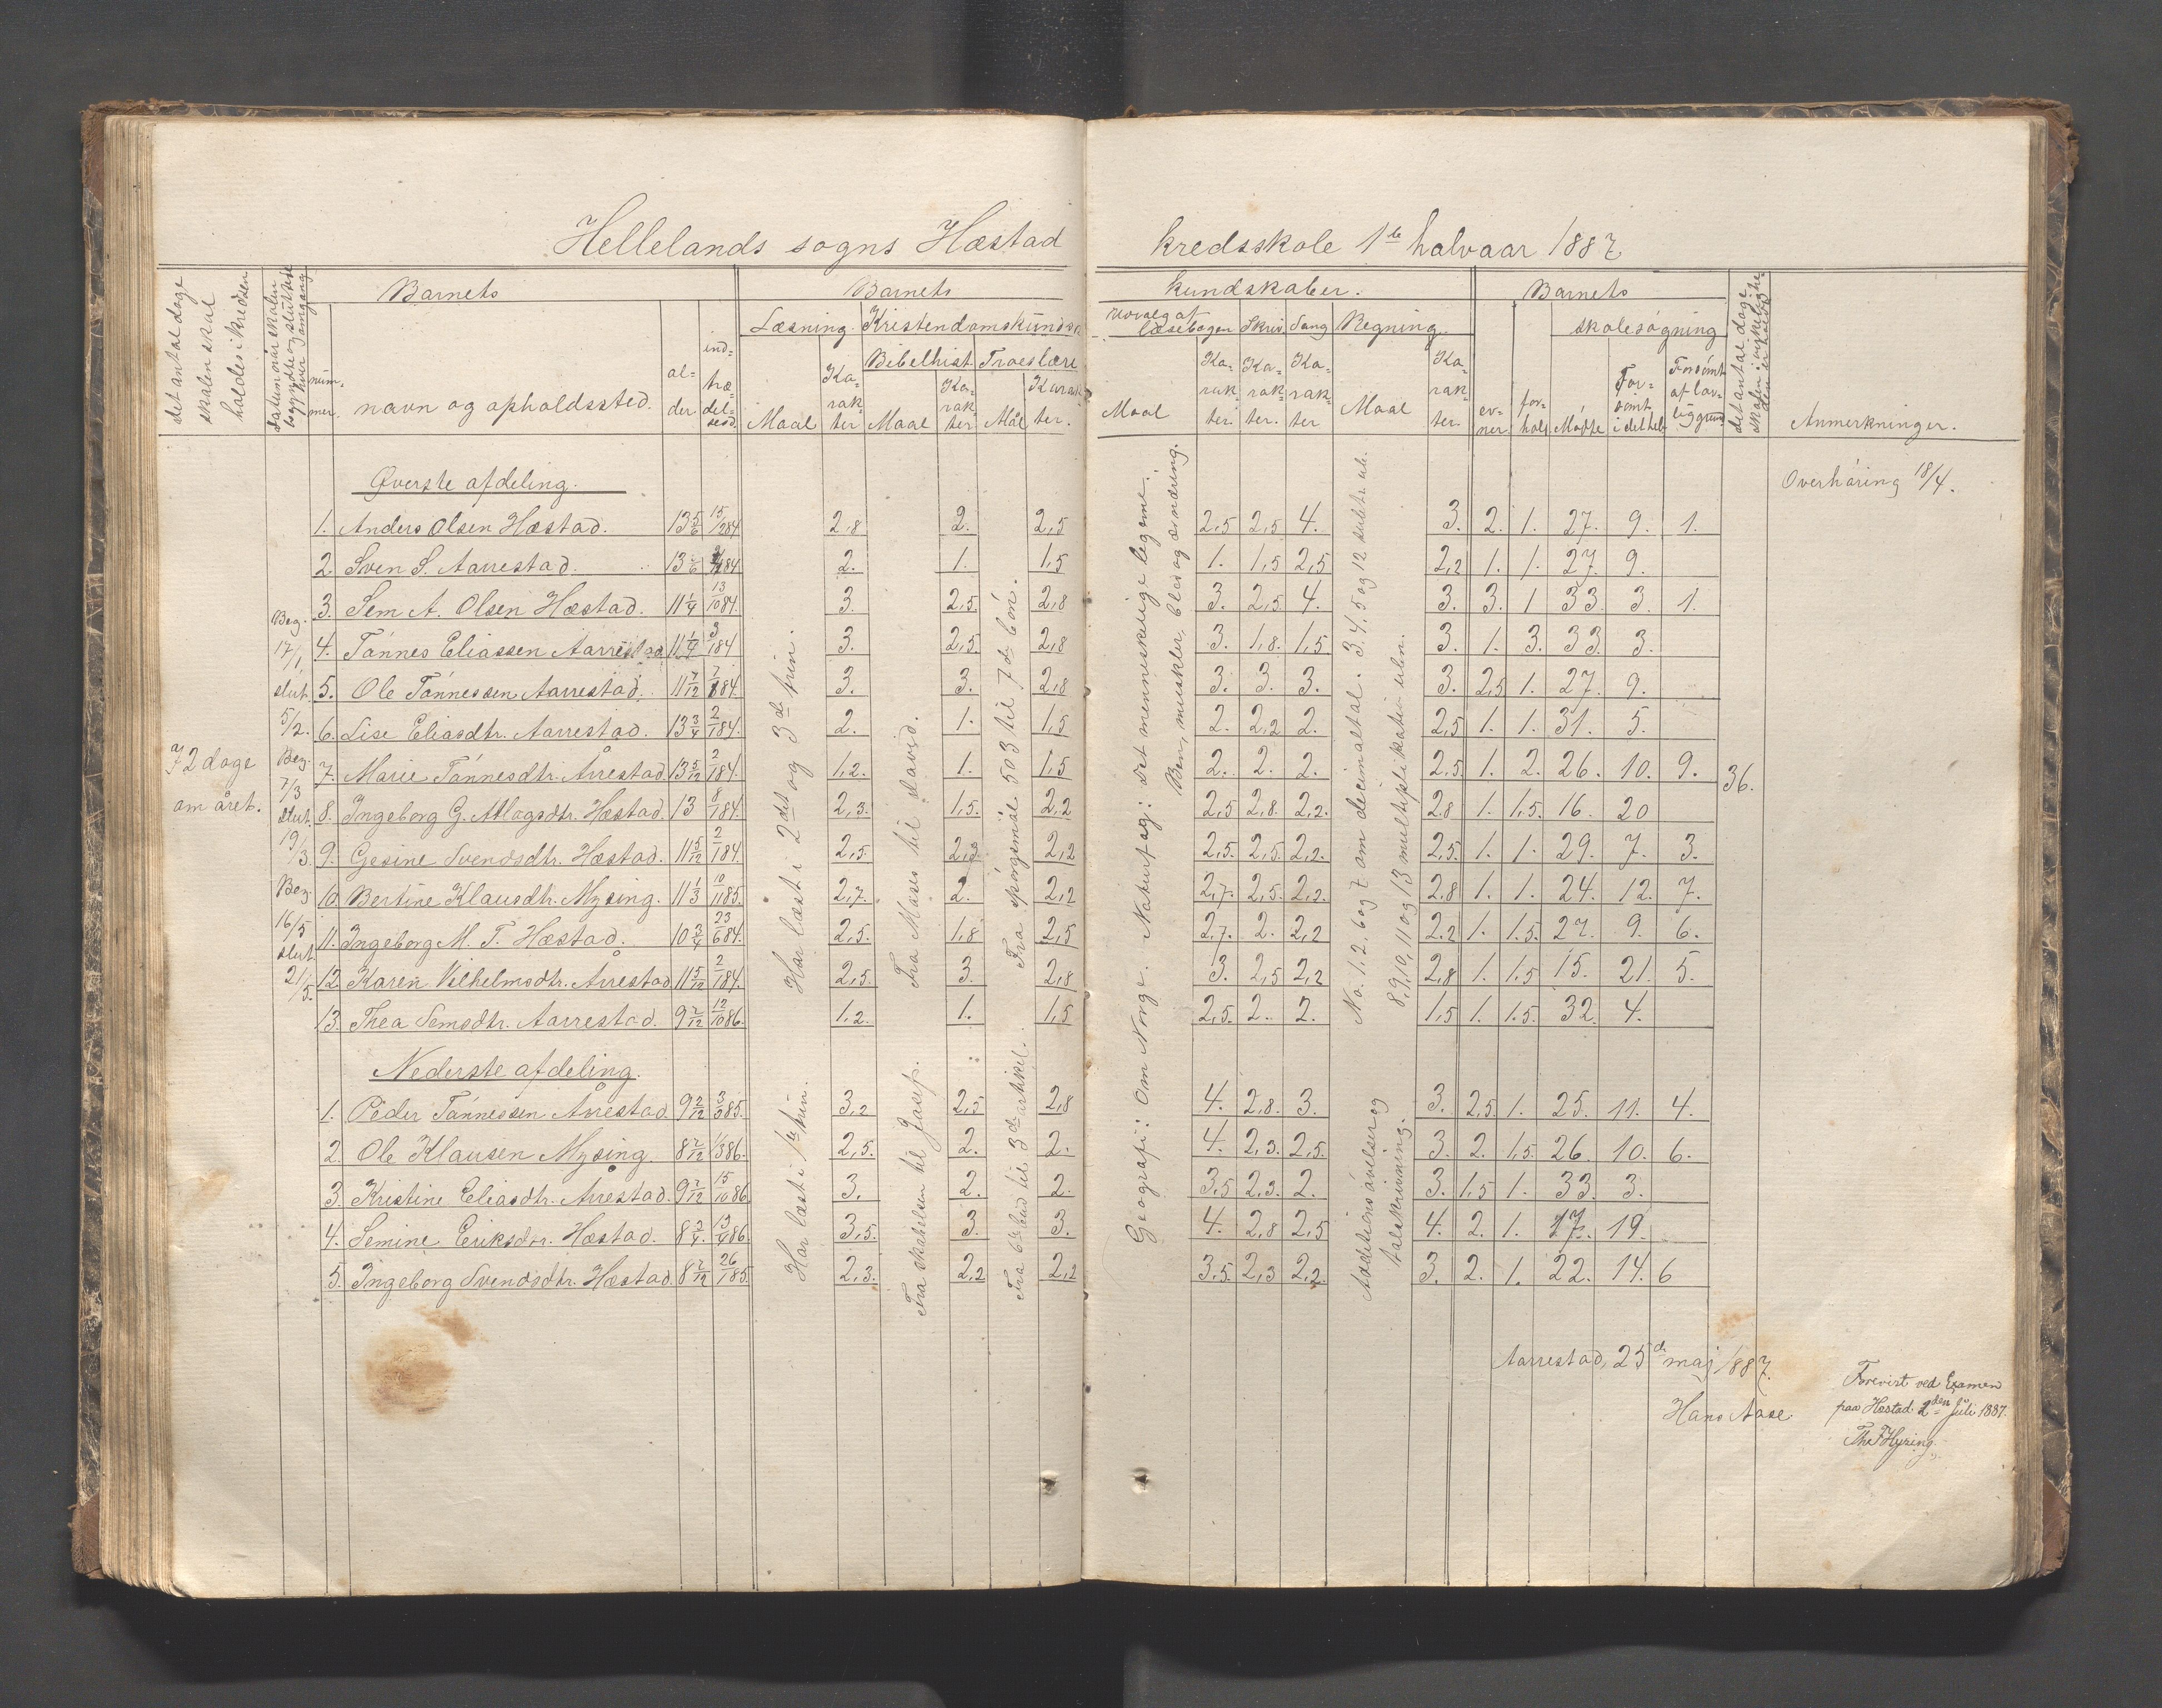 Hellelands sogns Hæstad kredsskole 1ste halvaar 1887
det antal dage skolen skal holdes i kredsen
datum når skolen begyndte og sluttede hver omgang
Barnets
Barnets
kundskaber.
Barnets
det antal dage skolen i virkeligheden er holdt
num-mer.
navn og opholdssted.
al-der
ind-træ-del-sesd.
Læsning.
Kristendomskundsk.
Bibelhist.
Troeslære
Maal
Ka-rak-ter
Maal
Ka-rak-ter
Mål
Karak-ter.
Udvalg af læsebogen
Skriv.
Sang
Regning.
Maal
Ka-rak-ter.
Ka-rak-ter.
Ka-rak-ter
Maal
Ka-rak-ter.
ev-ner
for-hold
skolesøgning
Mødte
For-sømt i det hele
Forsømt af lov-lig grund
Anmerkninger.
72 dage om året.
Beg. 17/1 slut. 5/2.
Beg. 7/3 slut. 19/3.
Beg. 16/5 slut. 21/5.
36.
Overhøring 18/4.
Øverste afdeling.
1. Anders Olsen Hæstad. 13 5/6 15/1284 2,8 2. 2,5 2,5 2,5 4. 3. 2. 1. 27. 9. 1.
2. Sven S. Aarrestad. 13 2. 1. 1,5 1. 1,5 2,5 2,2 1. 1. 27. 9.
3. Sem A. Olsen Hæstad. 11 1/4 13/1084. 3. 2,5. 2,8 3. 2,5. 4. 3. 3. 1 33. 3. 1.
4. Tønnes Eliassen Aarrestad 11 1/4 3/184 3. 2,5 2,8 3. 1,8. 1,5 3. 1. 3. 33. 3.
5. Ole Tønnessen Aarrestad. 11 7/12 7/184. 3. 3. 2,8 3. 3. 3. 3. 2,5 1. 27. 9.
6. Lise Eliasdtr. Aarrestad. 13 3/4 2/184. 2. 1. 1,5 2. 2,2 2. 2,5 1. 1. 31. 5.
7. Marie Tønnesdtr. Årrestad. 13 5/12 2/184. 1,2. 1. 1,5 2. 2. 2. 2,5. 1. 2. 26. 10. 9.
8. Ingeborg G. Atlagsdtr. Hæstad. 13 8/184. 2,3. 1,5. 2,2 2,5 2,8 2,2. 2,8 1. 1,5. 16. 20
9. Gesine Svendsdtr. Hæstad. 11 5/12 2/184. 2,5. 2,3 2,2 2,5. 2,5. 2,2. 2,5. 1. 1. 29. 7. 3.
10. Bertine Klausdtr. Mysing. 11 1/3 10/1185. 2,7. 2. 2,2 2,7. 2,5. 2,2. 2,8 1. 1. 24. 12. 7.
11. Ingeborg M. T. Hæstad. 10 3/4 23/684. 2,5. 1,8 2,5 2,7. 2. 2,2 2,2 1. 1.5. 27. 9. 6.
12. Karen Vilhelmsdtr. Årrestad 11 5/12 2/184. 2,5. 3. 2,8 3. 2,5 2,2 2,8 1. 1,5 15. 21. 5.
13. Thea Semsdtr. Aarrestad. 9 7/12 12/1086. 1,2. 1. 1,5 2,5. 2. 2. 1,5 1. 1.5. 32. 4.
Har læst i 2det og 3die trin.
Fra Moses til David.
Fra spørgsmål 503 til 7de bøn.
Naturfag: det menneskelige legeme: Ben, muskler, blod og ernæring.
No. 1. 2. 6 og 7 om decimaltal. 3. 4. 5 og 12 subtr. ub. 8, 9, 10, 11 og 13 multiplikation ubn.
Nederste afdeling.
1. Peder Tønnessen Årrestad. 9 2/12 3/385. 3,2 2,5 2,8 4. 2,8. 3. 3. 2,5. 1. 25. 11. 4.
2. Ole Klausen Mysing. 8 7/12 1/386. 2,5. 2. 2. 4. 2,3. 2,5. 3. 2. 1,5. 26. 10. 6.
3. Kristine Eliasdtr. Årrestad. 9 7/12 15/1086. 3. 2. 2. 3,5 2,3. 2. 3. 1,5 1. 33. 3.
4. Semine Eriksdtr. Hæstad. 8 3/4. 13/486. 3,5. 3. 3. 4. 2,8 2,5 4. 2. 1. 17. 19.
5. Ingeborg Svendsdtr. Hæstad. 8 7/12 26/185. 2,3. 2,2 2,2 3,5. 2,3 2,2. 3. 2. 1. 22. 14. 6
Har læst i 1ste trin.
Fra skabelsen til Josef.
Fra 6te bud til 3die artikel.
Geografi: Om Norge.
Additionsøvelser og talskrivning.
Aarrestad, 25de maj 1887.
Hans Aase.
Forevist ved Examen
paa Hæstad 2den Juli 1887.
Th. F. Hysing.